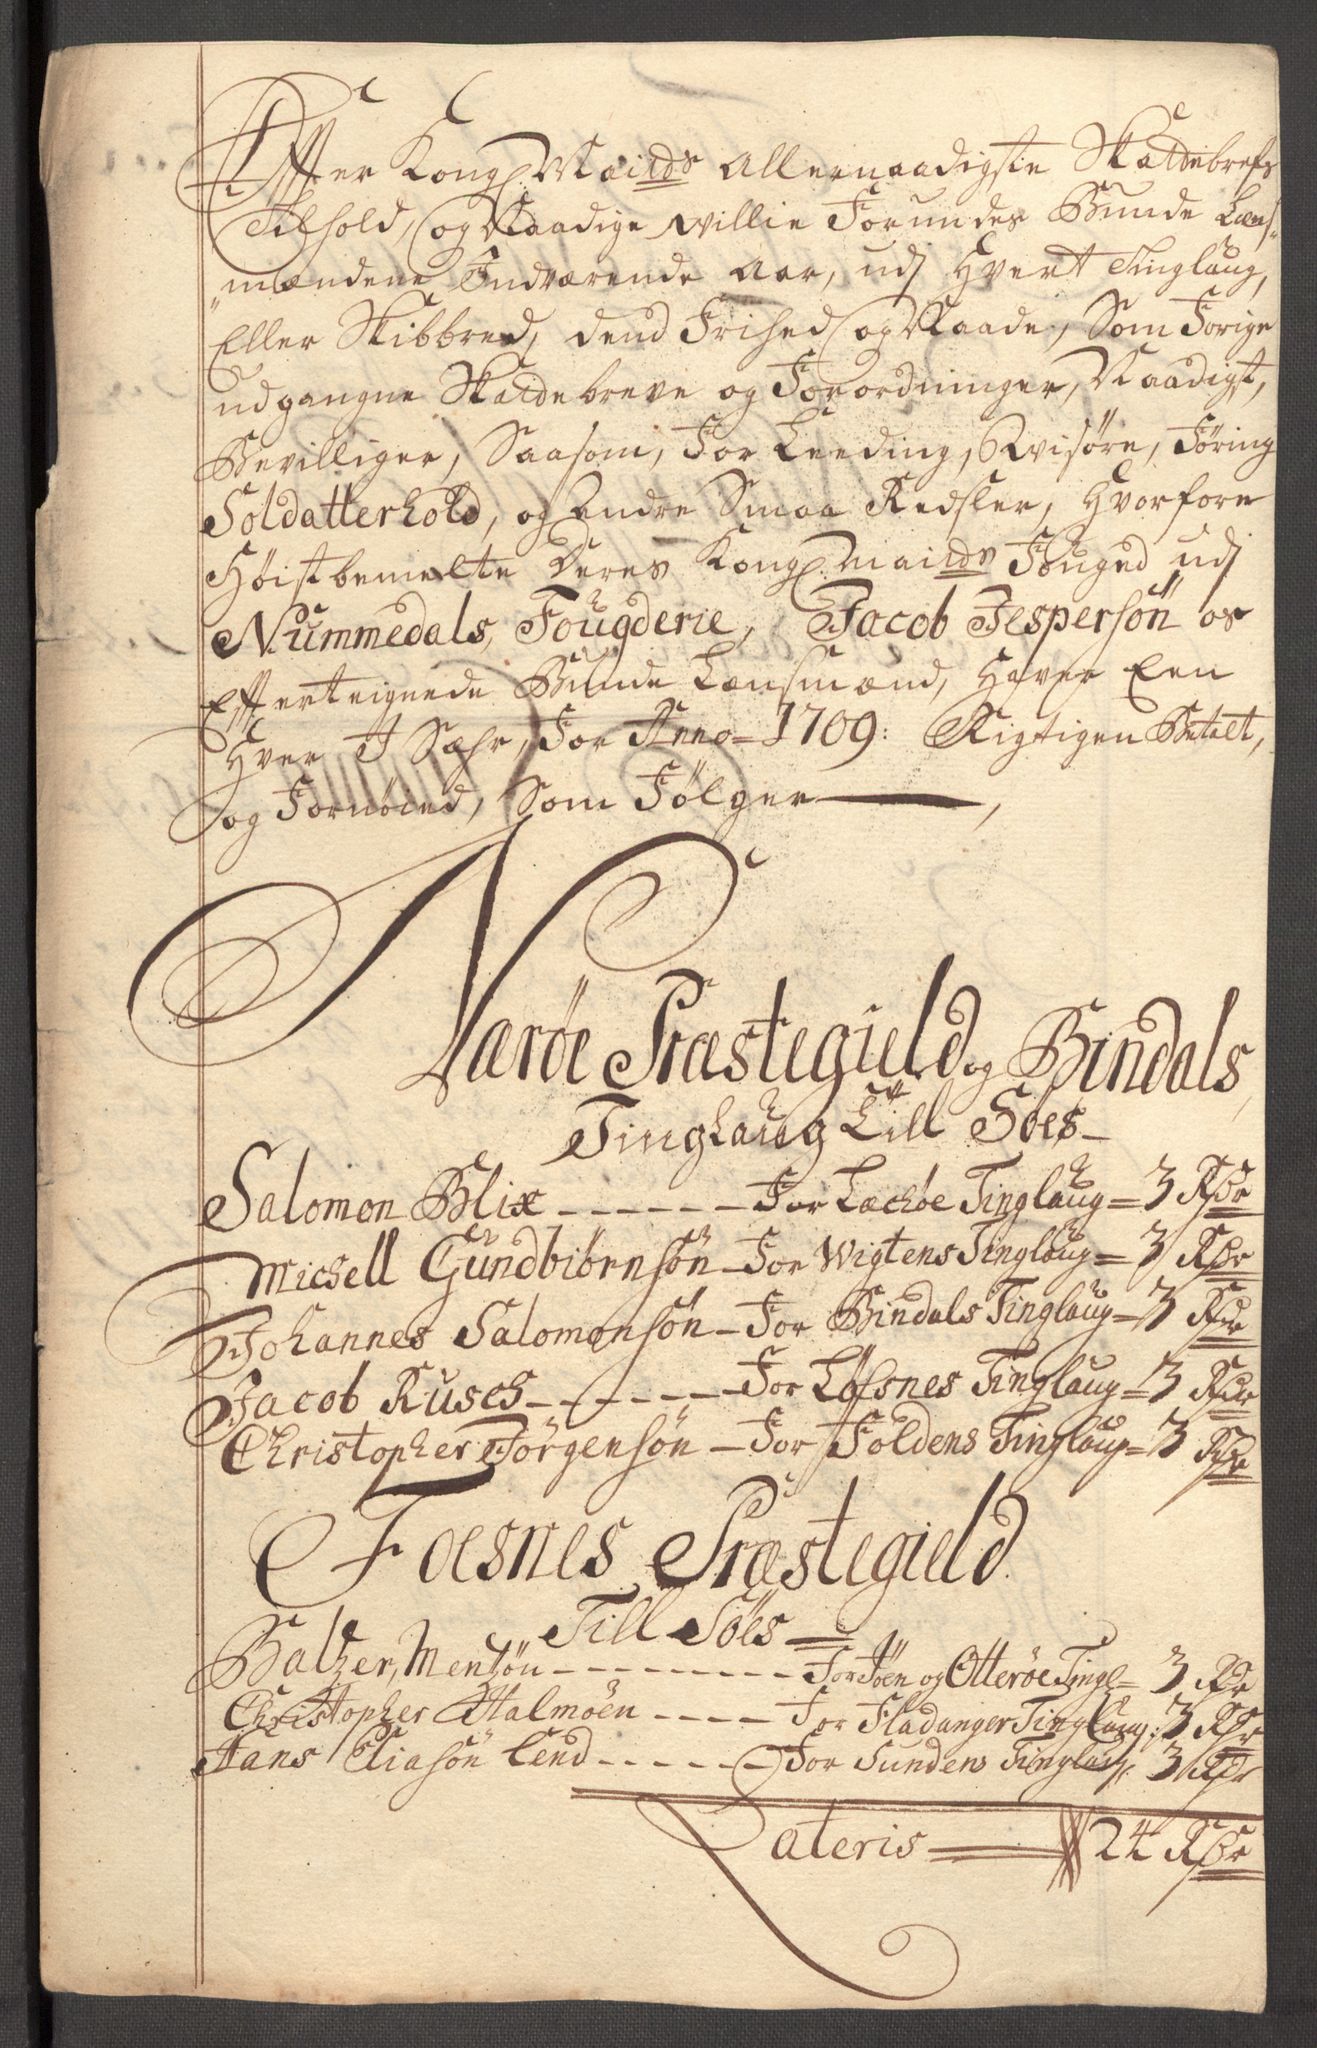 Effter Kong Maitts Allernaadigste Skattebrefs
Tilhold, og Naadige willie Forundes Bunde Læns-
mændene Indværende Aar, udj Hvert Tinglaug,
Eller Skibbred, dend Frihed og Naade, Som Forige
udgangne Skattebreve og Forordninger, Naadigst,
Bevilliger, Saasom, For Leeding, Røisöre, Föring
Soldatterhold, og Andre Smaa Redsler, Hvorfore
Höistbemelte Deres Kong Maitts Fouged udj
Nummedals, Fougderie, Jacob Jespersön os
Effterteignede Bunde Lænsmænd, Haver Een
Hver J Sæhr, For Anno 1709: Rigtigen Betalt,
og Fornöied, Som Fölger
Næröe Præstegield og Bindals
Tinglaug Till Söes
Salomon Blix - - - - - - For Læchöe Tinglaug = 3 Rdr
Michell Gundbiörnsön - For Wigtens Tinglaug = 3 Rdr
Johannes Salomonsön - For Bindals Tinglaug = 3 Rdr
Jacob Rusch - - - - - For Löfsnes Tinglaug = 3 Rdr
Christopher Jörgensön - For Foldens Tinglaug = 3 Rdr
Foesnes Præstegield
Till Söes
Balzer, Mentzön - - - - - - - - - For Jöen og Otteröe Tingl = 3 Rdr
Christopher Halmöen - - - - For Fladanger Tinglaug: 3 Rdr
Hans Eliasön Lend - - - - - - For Sundens Tinglaug: 3 Rdr
Lateris 24 Rdr